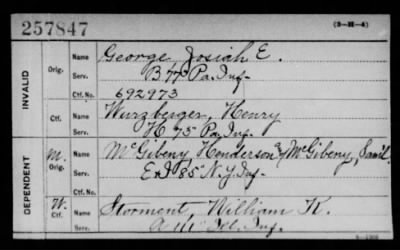 257847
(3-M-4)
INVALID
Orig. Name George, Josiah E.
Serv. B 77 Pa. Inf.
Ctf. No. 692973
Ctf. Name Wurzberger, Henry
Serv. H 75 Pa. Inf.
DEPENDENT
M. Orig. Name McGibeny, Henderson McGibeny, Saml.
Serv. E 85 N.Y. Inf.
Ctf. No.
W. Ctf. Name Storment, William K.
Serv. Ill. Inf.